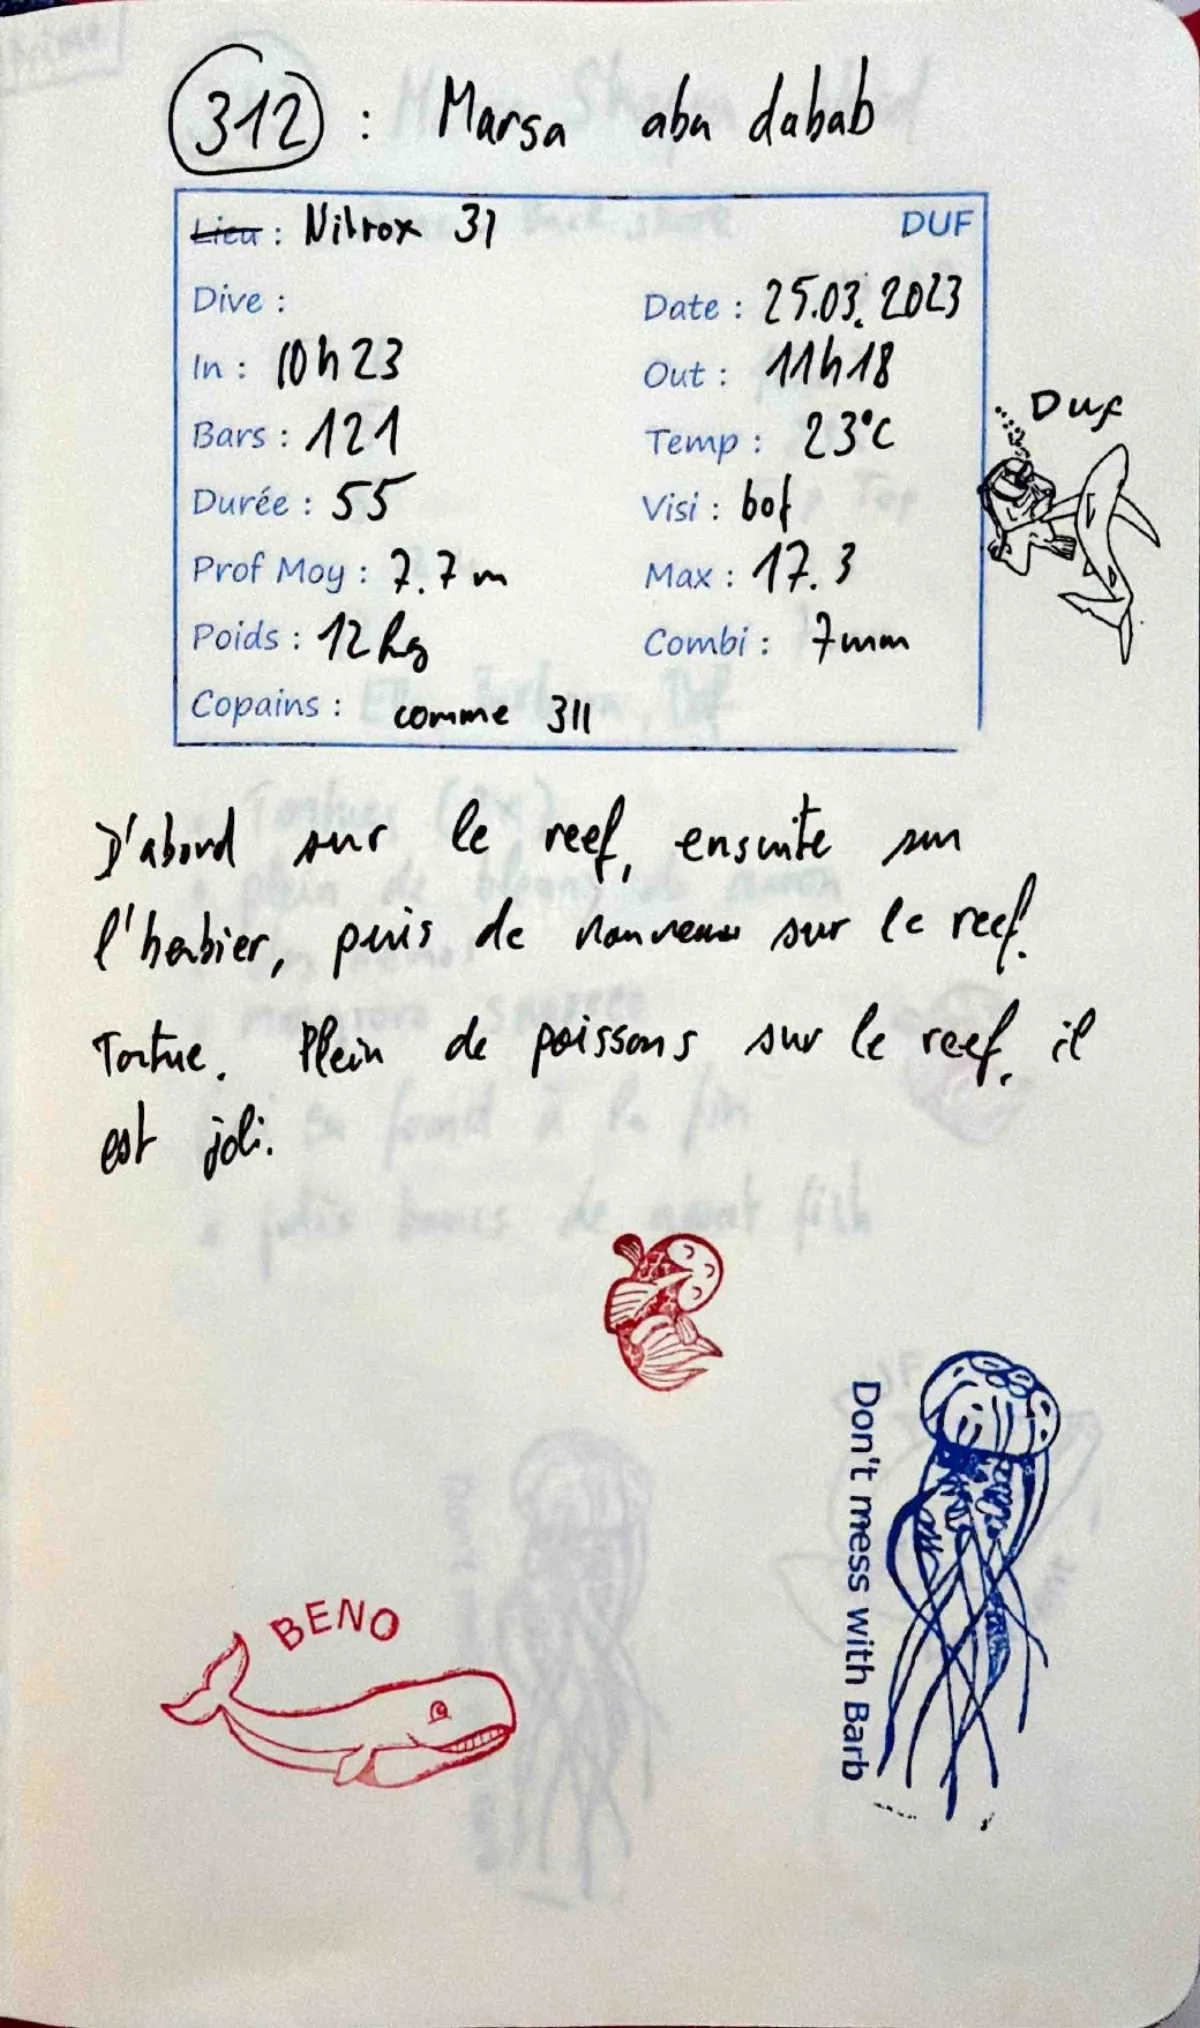 312 : Marsa abu dabab
Lieu : Nitrox 31 DUF
Dive : Date : 25.03.2023
In : 10h23 Out : 11h18
Bars : 121 Temp : 23°C
Duf
Durée : 55 Visi : bof
Prof Moy : 7.7 m Max : 17.3
Poids : 12 kg Combi : 7mm
Copains : comme 311
D'abord sur le reef, ensuite sur
l'herbier, puis de nouveau sur le reef.
Tortue. Plein de poissons sur le reef, il
est joli.
Don't mess with Barb
BENO